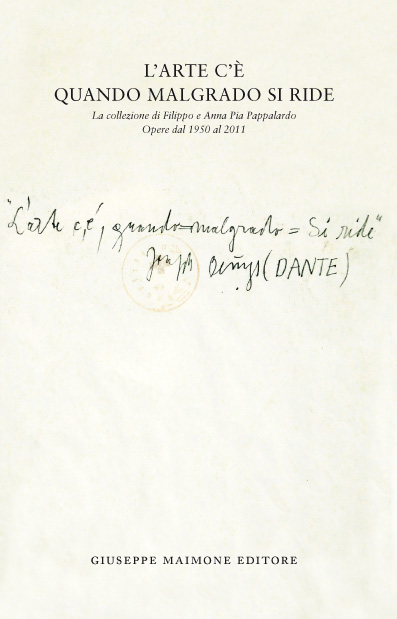 L'ARTE C'È
QUANDO MALGRADO SI RIDE
La collezione di Filippo e Anna Pia Pappalardo
Opere dal 1950 al 2011
"L'arte c,é, quando=malgrado = Si ride"
Joseph Beuys (DANTE)
GIUSEPPE MAIMONE EDITORE